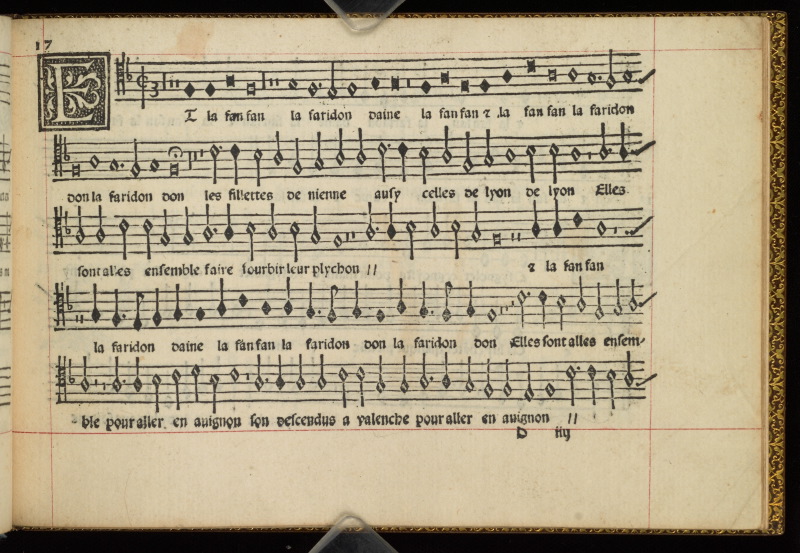 17
ET la fan fan la faridon daine la fan fan ⁊ la fan fan la faridon
don la faridon don les fillettes de nienne ausy celles de lyon de lyon Elles
sont alles ensemble faire fourbir leur plychon // ⁊ la fan fan
la faridon daine la fan fan la faridon don la faridon don Elles sont alles ensem-
ble pour aller en auignon son descendus a valenche pour aller en auignon //
D iiij